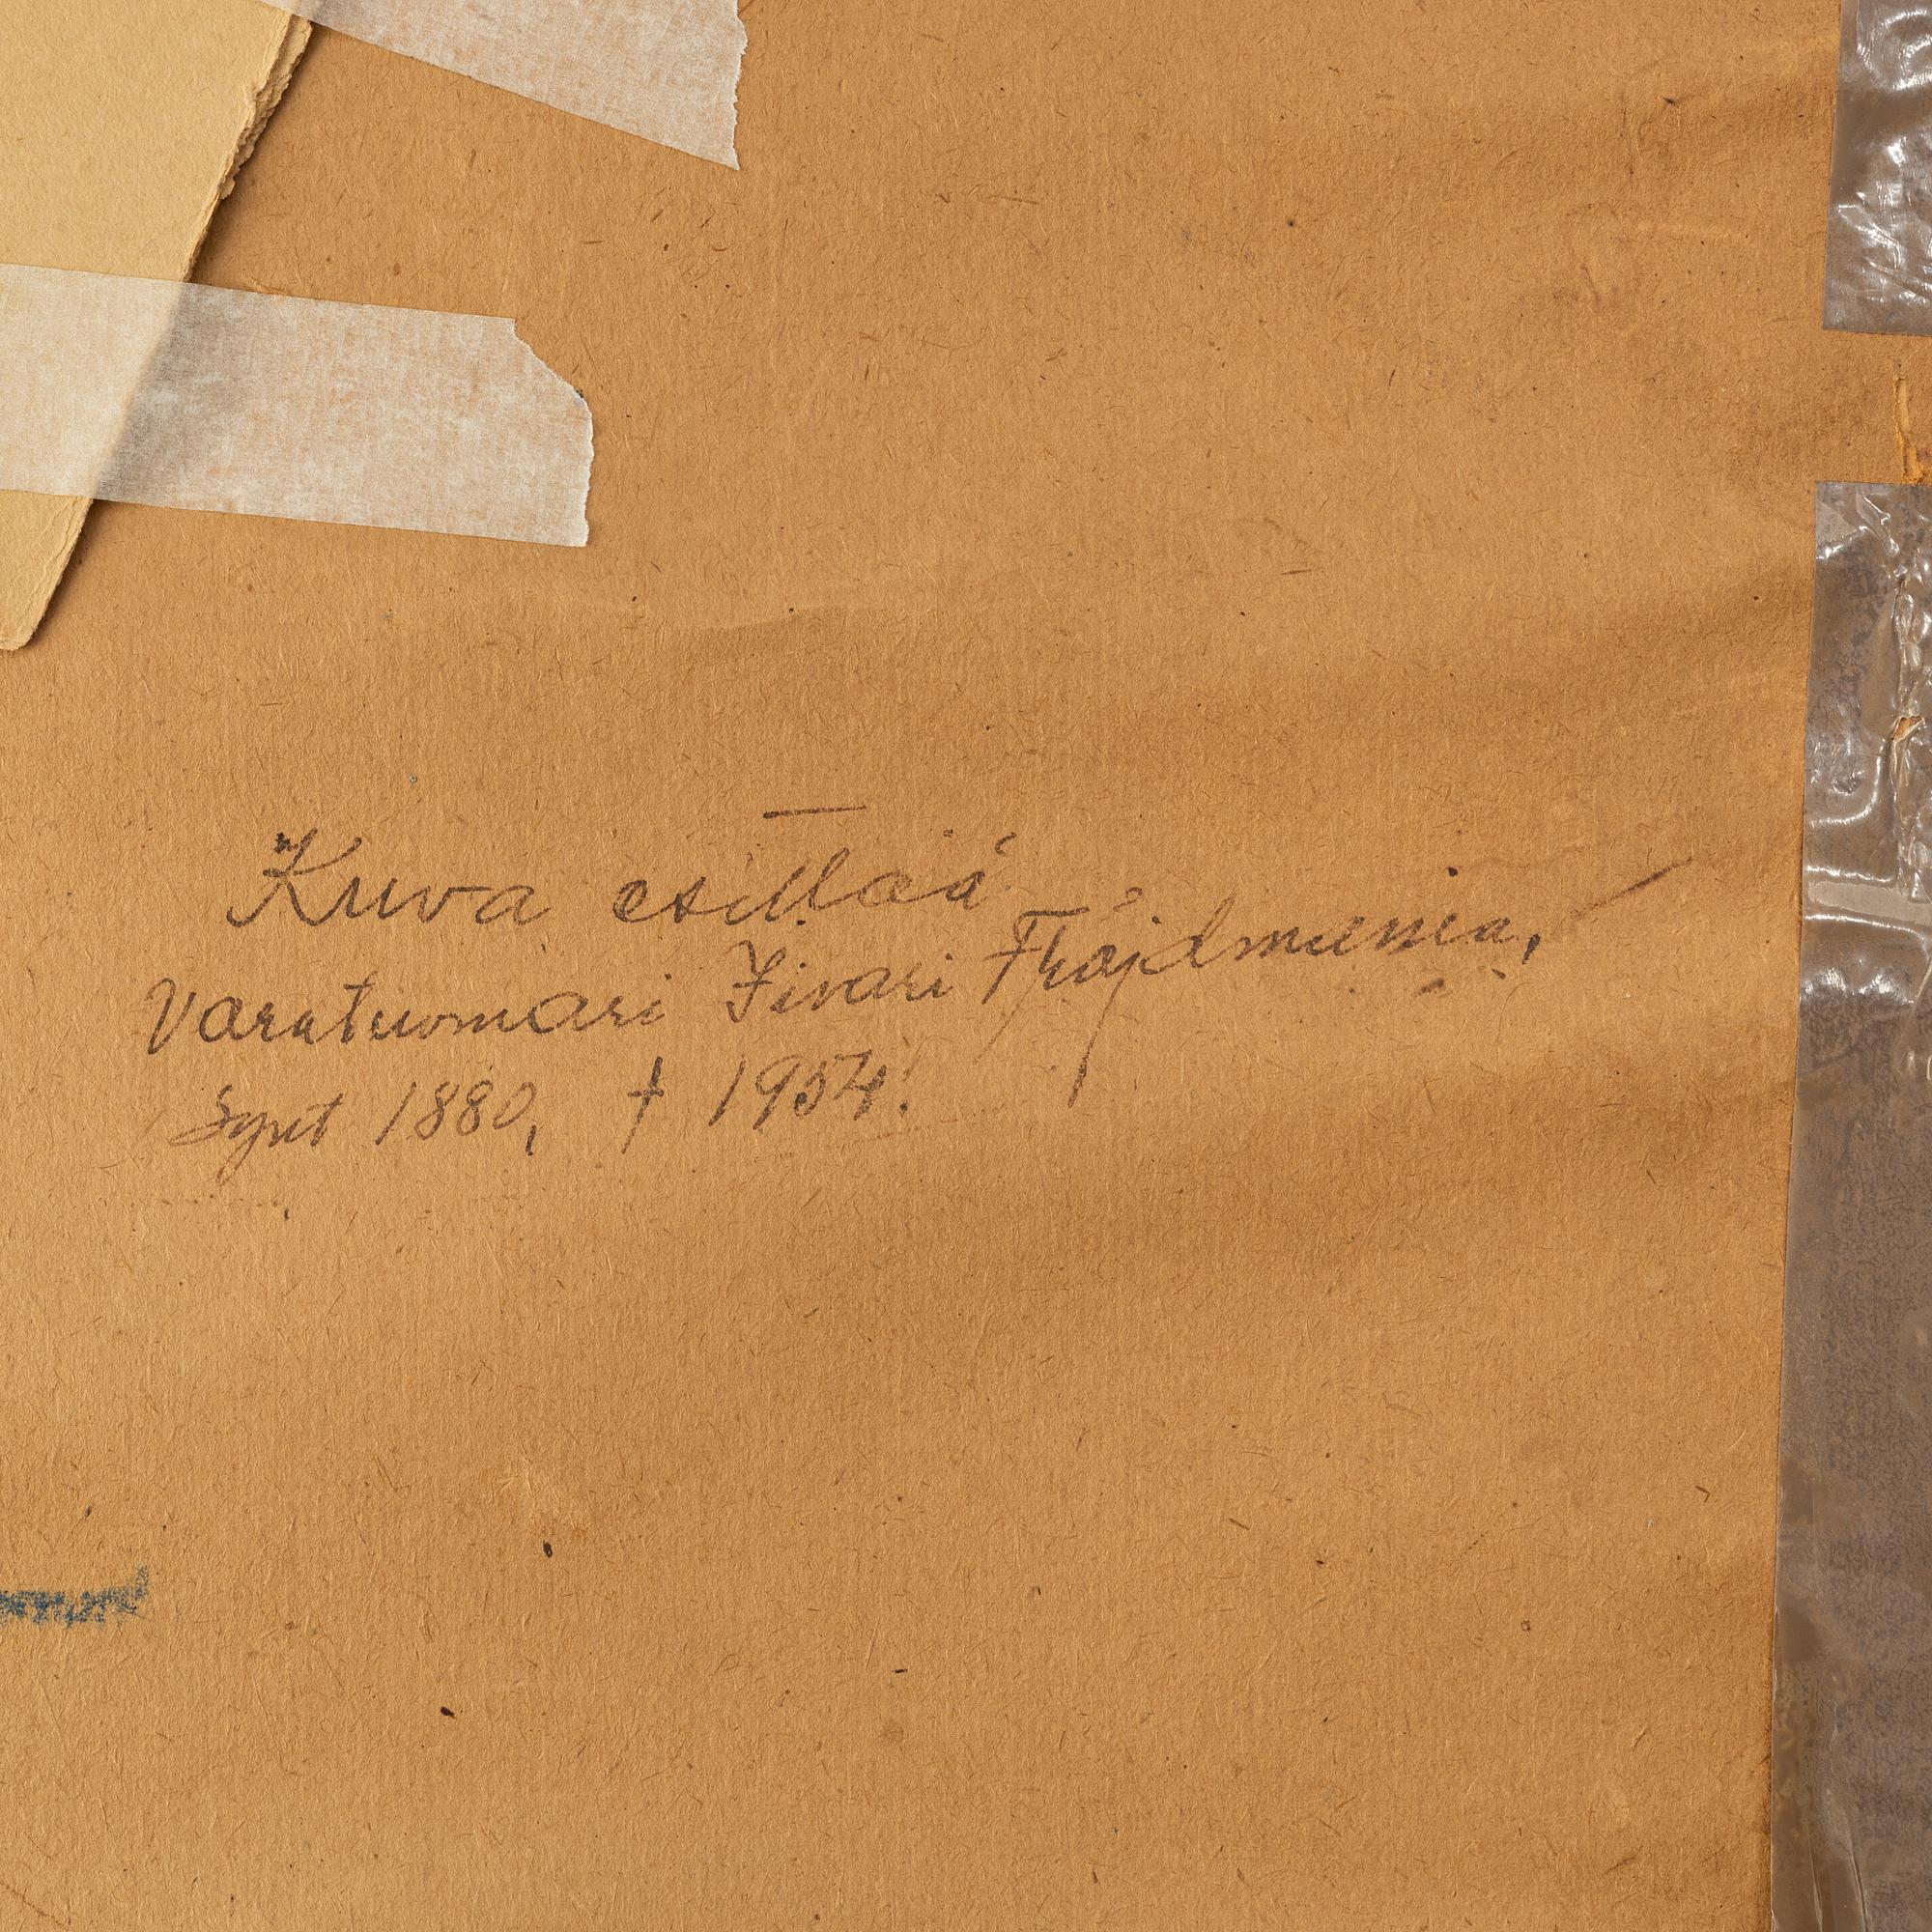 Kuva esittää
Varatuomari Iivari Fråjdmania,
Synt 1880, † 1954!